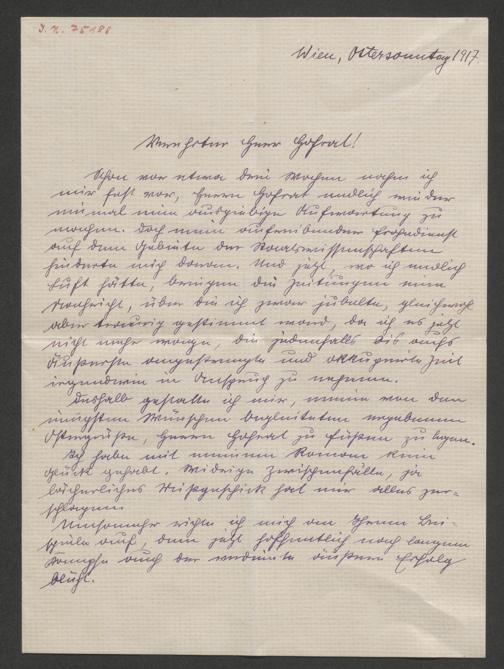 J. N. 75188
Wien, Ostersonntag 1917.
Verehrter Herr Hofrat!
Schon vor etwa drei Wochen nahm ich
mir fest vor, Herrn Hofrat endlich wieder
einmal meine ausgiebige Aufwartung zu
machen. Doch mein aufreibender Frohndienst
auf dem Gebiete der Staatswissenschaften
hinderte mich daran. Und jetzt, wo ich endlich
Luft hätte, bringen die Zeitungen eine
Nachricht, über die ich zwar jubelte, gleichwohl
aber traurig gestimmt ward, da ich es jetzt
nicht mehr wage, die jedenfalls bis aufs
Äußerste angestrengte und okkupierte Zeit
irgendwie in Anspruch zu nehmen.
Deshalb gestatte ich mir, meine von den
innigsten Wünschen begleiteten ergebenen
Ostergrüße, Herrn Hofrat zu Füßen zu legen.
Ich habe mit meinem Roman kein
Glück gehabt. Widrige Zwischenfälle, ja
lächerliches Mißgeschick hat mir alles zer-
schlagen.
Umsomehr richte ich mich an Ihrem Bei-
spiele auf, dem jetzt hoffentlich nach langem
Kampfe auch der verdiente äußere Erfolg
blüht.